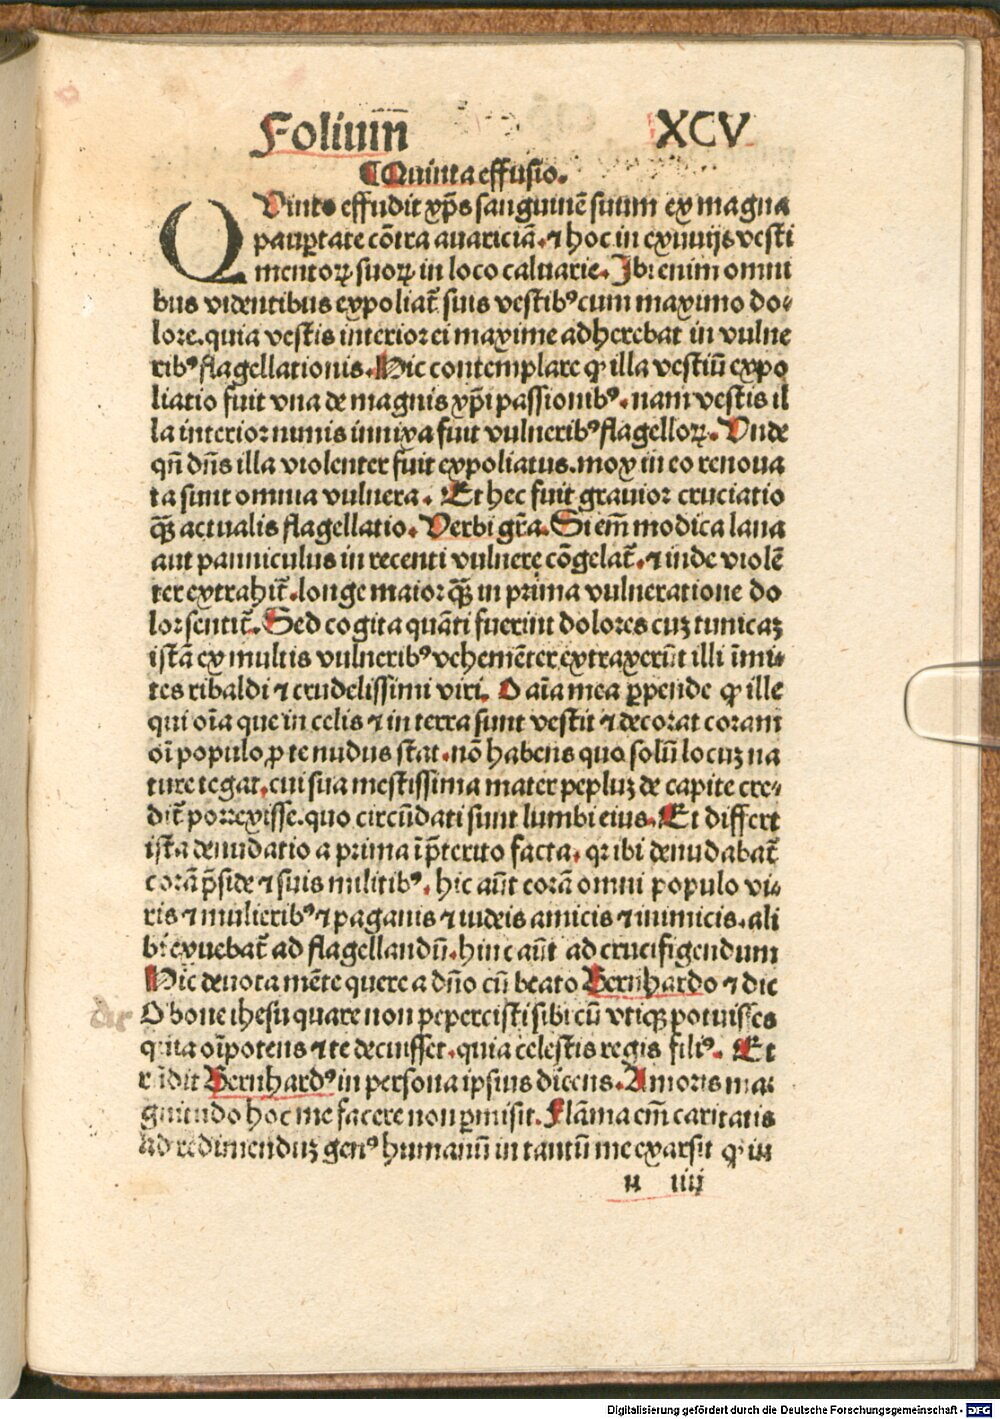 Foliuın̄ XCV
¶Quinta effusio.
QUinto effudit xp̄s sanguinē suum ex magna
paup̱tate cōtra auariciā. ⁊ hoc in exuuijs vesti
mentoꝝ suoꝝ in loco caluarie. Ibi enim omni
bus videntibus expoliat̄ suis vestibꝰ cum maximo do-
lore. quia vestis interior ei maxime adherebat in vulne
ribꝰ flagellationis. Hic contemplare ꝙ illa vestiū expo
liatio fuit vna de magnis xp̄i passionibꝰ. nam vestis il
la interior nimis innixa fuit vulneribꝰ flagelloꝝ. Unde
qn̄ dn̄s illa violenter fuit expoliatus. mox in eo renoua
ta sunt omnia vulnera. Et hec fuit grauior cruciatio
q̄ꝫ actualis flagellatio. Verbi gr̄a. Si em̄ modica lana
aut panniculus in recenti vulnere cōgelat̄. ⁊ inde violē
ter extrahit̄. longe maior q̄ꝫ in prima vulneratione do
lor sentit̄. Sed cogita quāti fuerint dolores cuꝫ tunicaꝫ
istā ex multis vulneribꝰ vehemēter extraxerūt illi īmi-
tes ribaldi ⁊ crudelissimi viri. O aīa mea ꝑpende ꝙ ille
qui oīa que in celis ⁊ in terra sunt vestit ⁊ decorat coram
oī populo ꝓ te nudus stat. nō habens quo solū locuꝫ na
ture tegat. cui sua mestissima mater pepluꝫ de capite cre-
dit̄ porrexisse. quo circūdati sunt lumbi eius. Et differt
ista denudatio a prima īp̄terito facta. qꝛ ibi denudabat̄
corā p̄side ⁊ suis militibꝰ. hic aūt corā omni populo vi-
ris ⁊ mulieribꝰ ⁊ paganis ⁊ iudeis amicis ⁊ inimicis. ali
bi exuebat̄ ad flagellandū. hinc aūt ad crucifigendum
Hic deuota mēte quere a dn̄o cū beato Bernhardo ⁊ dic
O bone ihesu quare non pepercisti sibi cū vtiqꝫ potuisses
quia oīpotens ⁊ te decuisset. quia celestis regis filiꝰ. Et
rn̄dit Bernhardꝰ in persona ipsius dicens. Amoris ma-
gnitudo hoc me facere non ꝑmisit. Flāma em̄ caritatis
ad redimenduꝫ genꝰ humanū in tantū me exarsit ꝙ in
n iiij
Digitalisierung gefördert durch die Deutsche Forschungsgemeinschaft - DFG